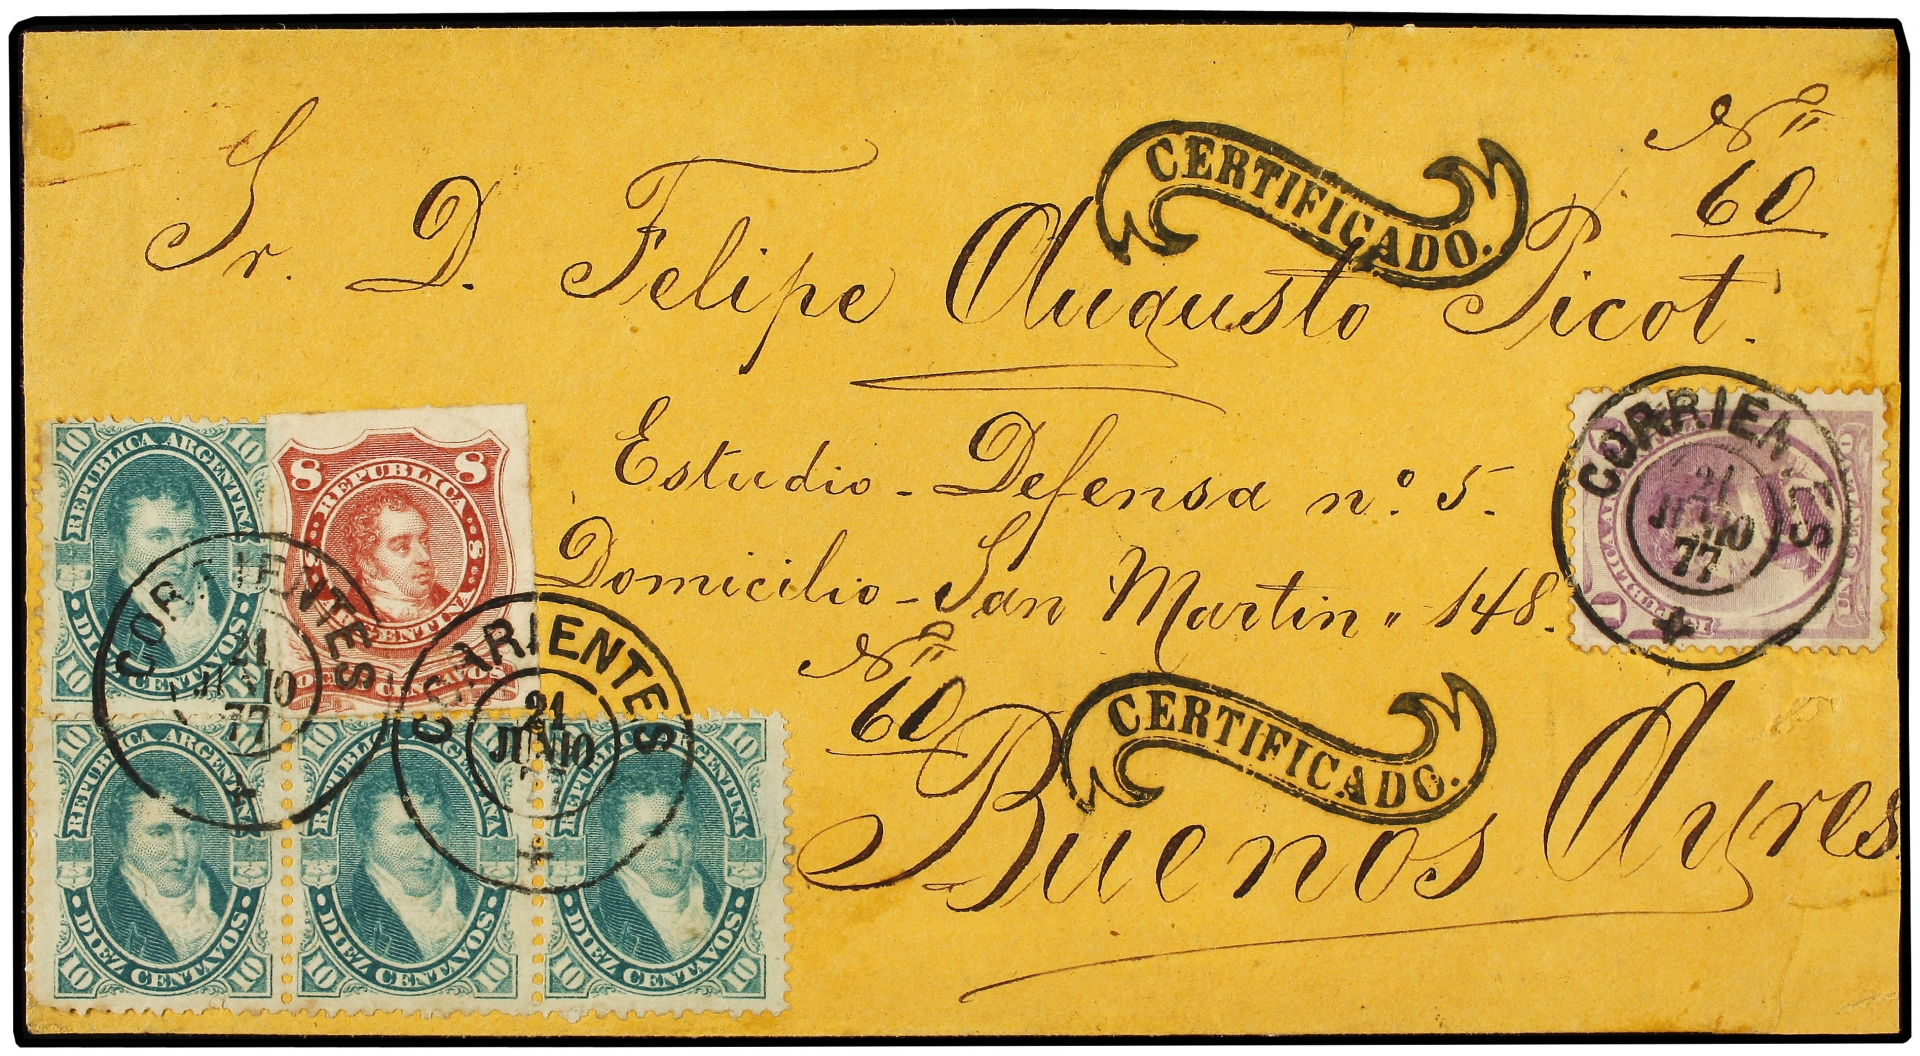 Nº
60
CERTIFICADO.
Sr. D. Felipe Augusto Picot.
Estudio - Defensa nº 5.
Domicilio - San Martin " 148.
Nº
60
CERTIFICADO.
Buenos Ayres
10 10
REPUBLICA ARGENTINA
DIEZ CENTAVOS
10
8 8
REPUBLICA
8
ARGENTINA
CENTAVOS
CORRIENTES
21
JUNIO
77
CORRIENTES
21
JUNIO
77
10
REPUBLICA ARGENTINA
DIEZ CENTAVOS
10 10
10
REPUBLICA
DIEZ CENTAVOS
10 10
10
ARGENTINA
DIEZ CENTAVOS
10 10
CORRIENTES
21
JUNIO
77
1